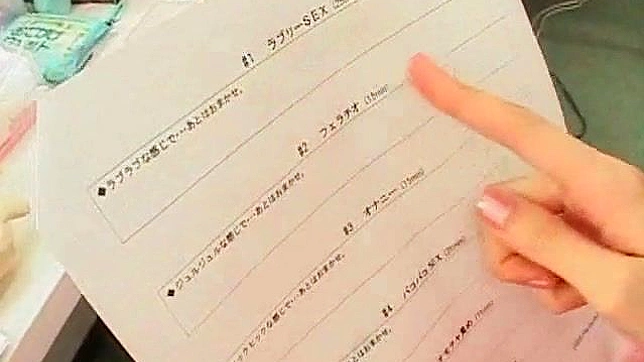 #1 ラブリーSEX
◆ラブラブな感じで・・・あとはおまかせ。
#2 フェラチオ (15min)
◆ジュルジュルな感じで・・・あとはおまかせ。
#3 オナニー (15min)
クビックな感じで・・・あとはおまかせ。
#4 パコパコSEX
あとはおまかせ。